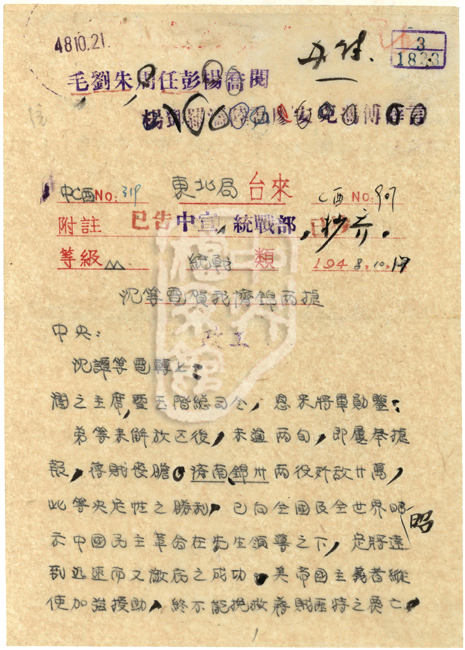 48 10.21.
毛劉朱周任彭楊喬閱
3
中西 No: 319 東北局 台來 C西 No: 907
附註 已告中宣, 統戰部, 抄齊.
等級 AA 統戰 類 1948.10.19
沈等電賀我濟錦兩捷
中央:
沈譚等電轉上:
潤之主席,暨玉階總司令,恩来將軍勛鑒:
弟等來解放区後,未逾两旬,即屢奉捷
報,蔣賊喪膽。濟南錦州两役歼敌廿萬,
此等决定性之勝利,已向全國及全世界昭
示中國民主革命在先生領導之下,定將達
到迅速而又澈底之成功,美帝國主義者縱
使加强援助,終不能挽救蔣賊匪特之灭亡,
1